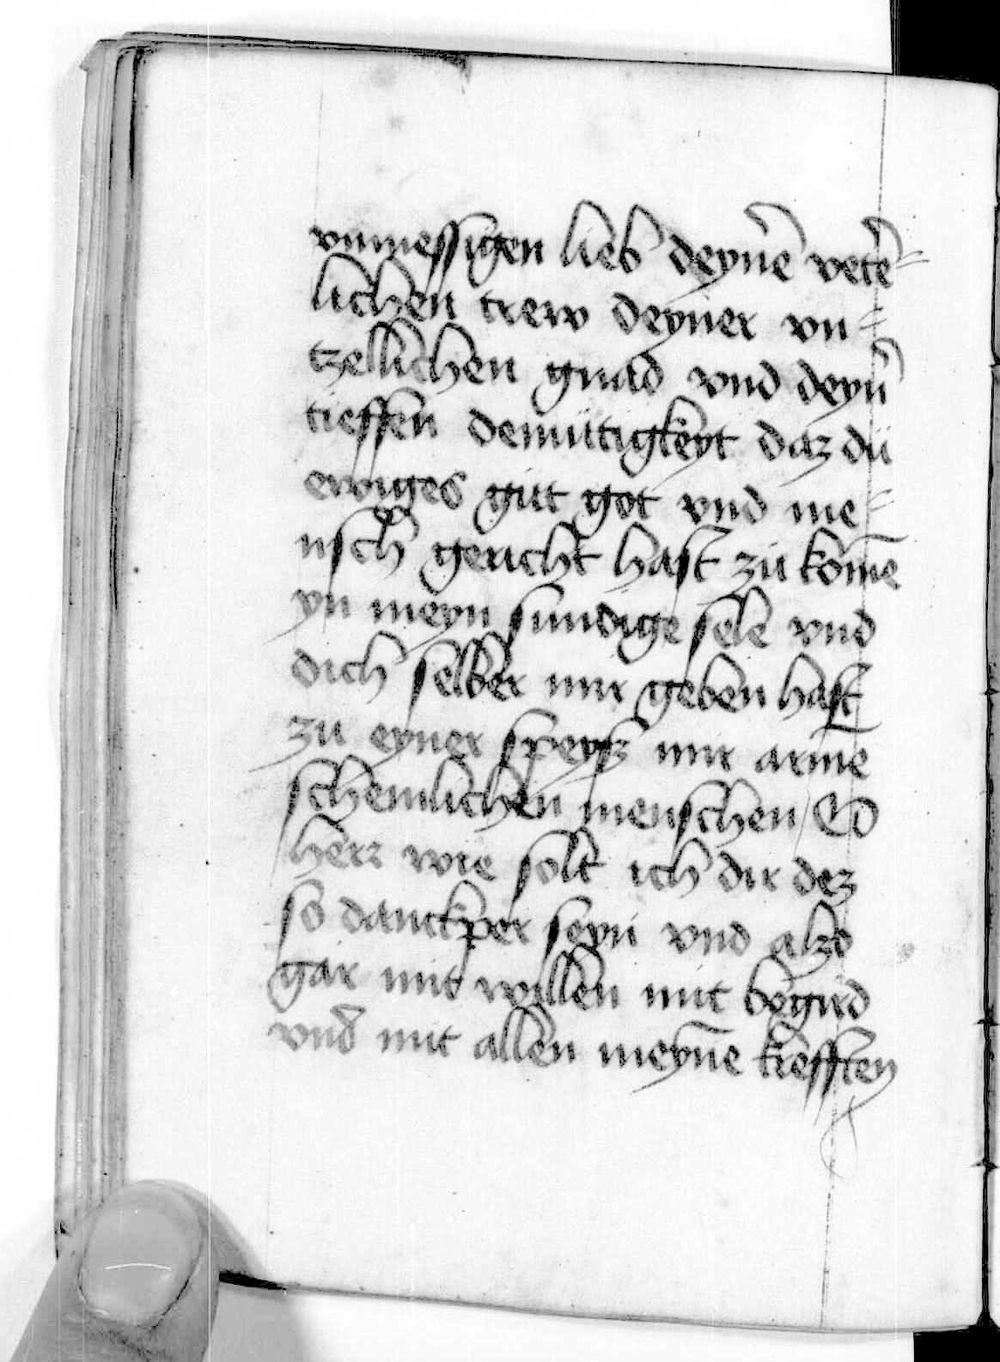 vnmessigen lieb deyn̄e vetē⸗
lichen trew deyner vn⸗
tzellichen gnad vnd deyn̄
tieffen demütigkeyt daz dü
ewiges güt got vnd me⸗
nsch gerücht hast zü kom̄e
yn meyn sundige sele vnd
dich selber mir geben hast
zü eyner speysz mir arme
schemlichen menschen / O
herr wie solt ich dir dez
so danckper seyn vnd alzo
gar mit willen mit begird
vnd mit allen meyn̄e krefften